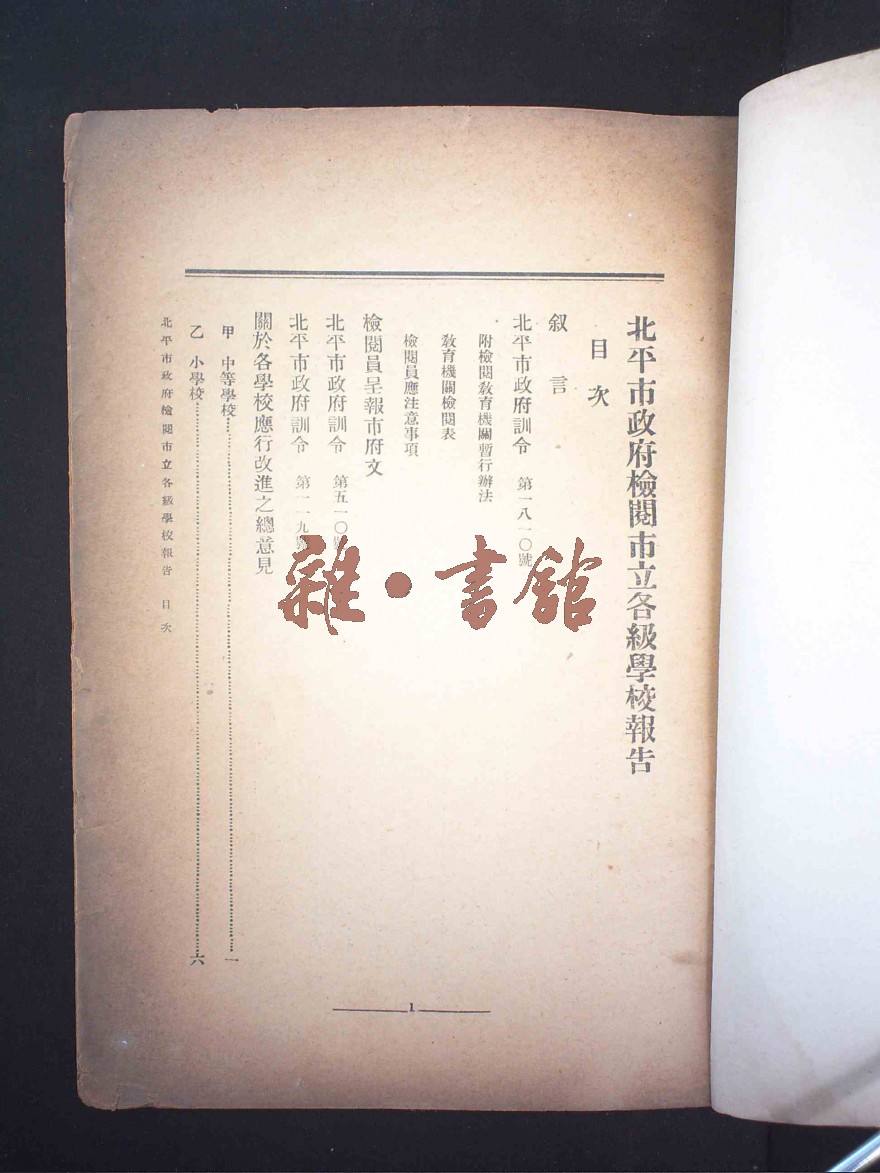 北平市政府檢閱市立各級學校報告
目次
叙言
北平市政府訓令 第一八一〇號
附檢閱教育機關暫行辦法
教育機關檢閱表
檢閱員應注意事項
檢閱員呈報市府文
北平市政府訓令 第五一〇號
北平市政府訓令 第一一九號
關於各學校應行改進之總意見
甲 中等學校⋯⋯⋯⋯⋯⋯⋯⋯一
乙 小學校⋯⋯⋯⋯⋯⋯⋯⋯六
北平市政府檢閱市立各級學校報告 目次
1
雜·書館